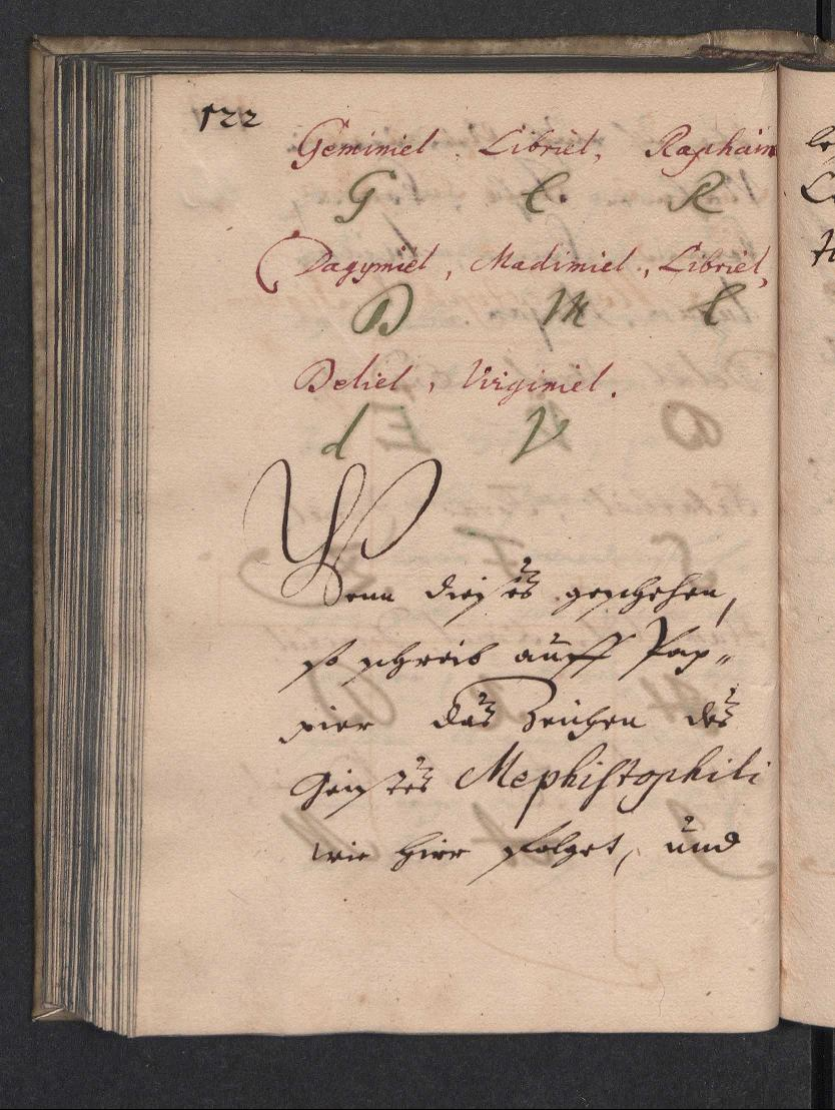 122
Geminiel, Libriel, Raphaim
G L. R
Dagymiel, Madimiel, Libriel,
D M L
Deliel, Virginiel.
d V
Wenn dießes geschehen,
so schreib auff Pap„
pier das Zeichen des
Geistes Mephistophili
wie hier folget, und